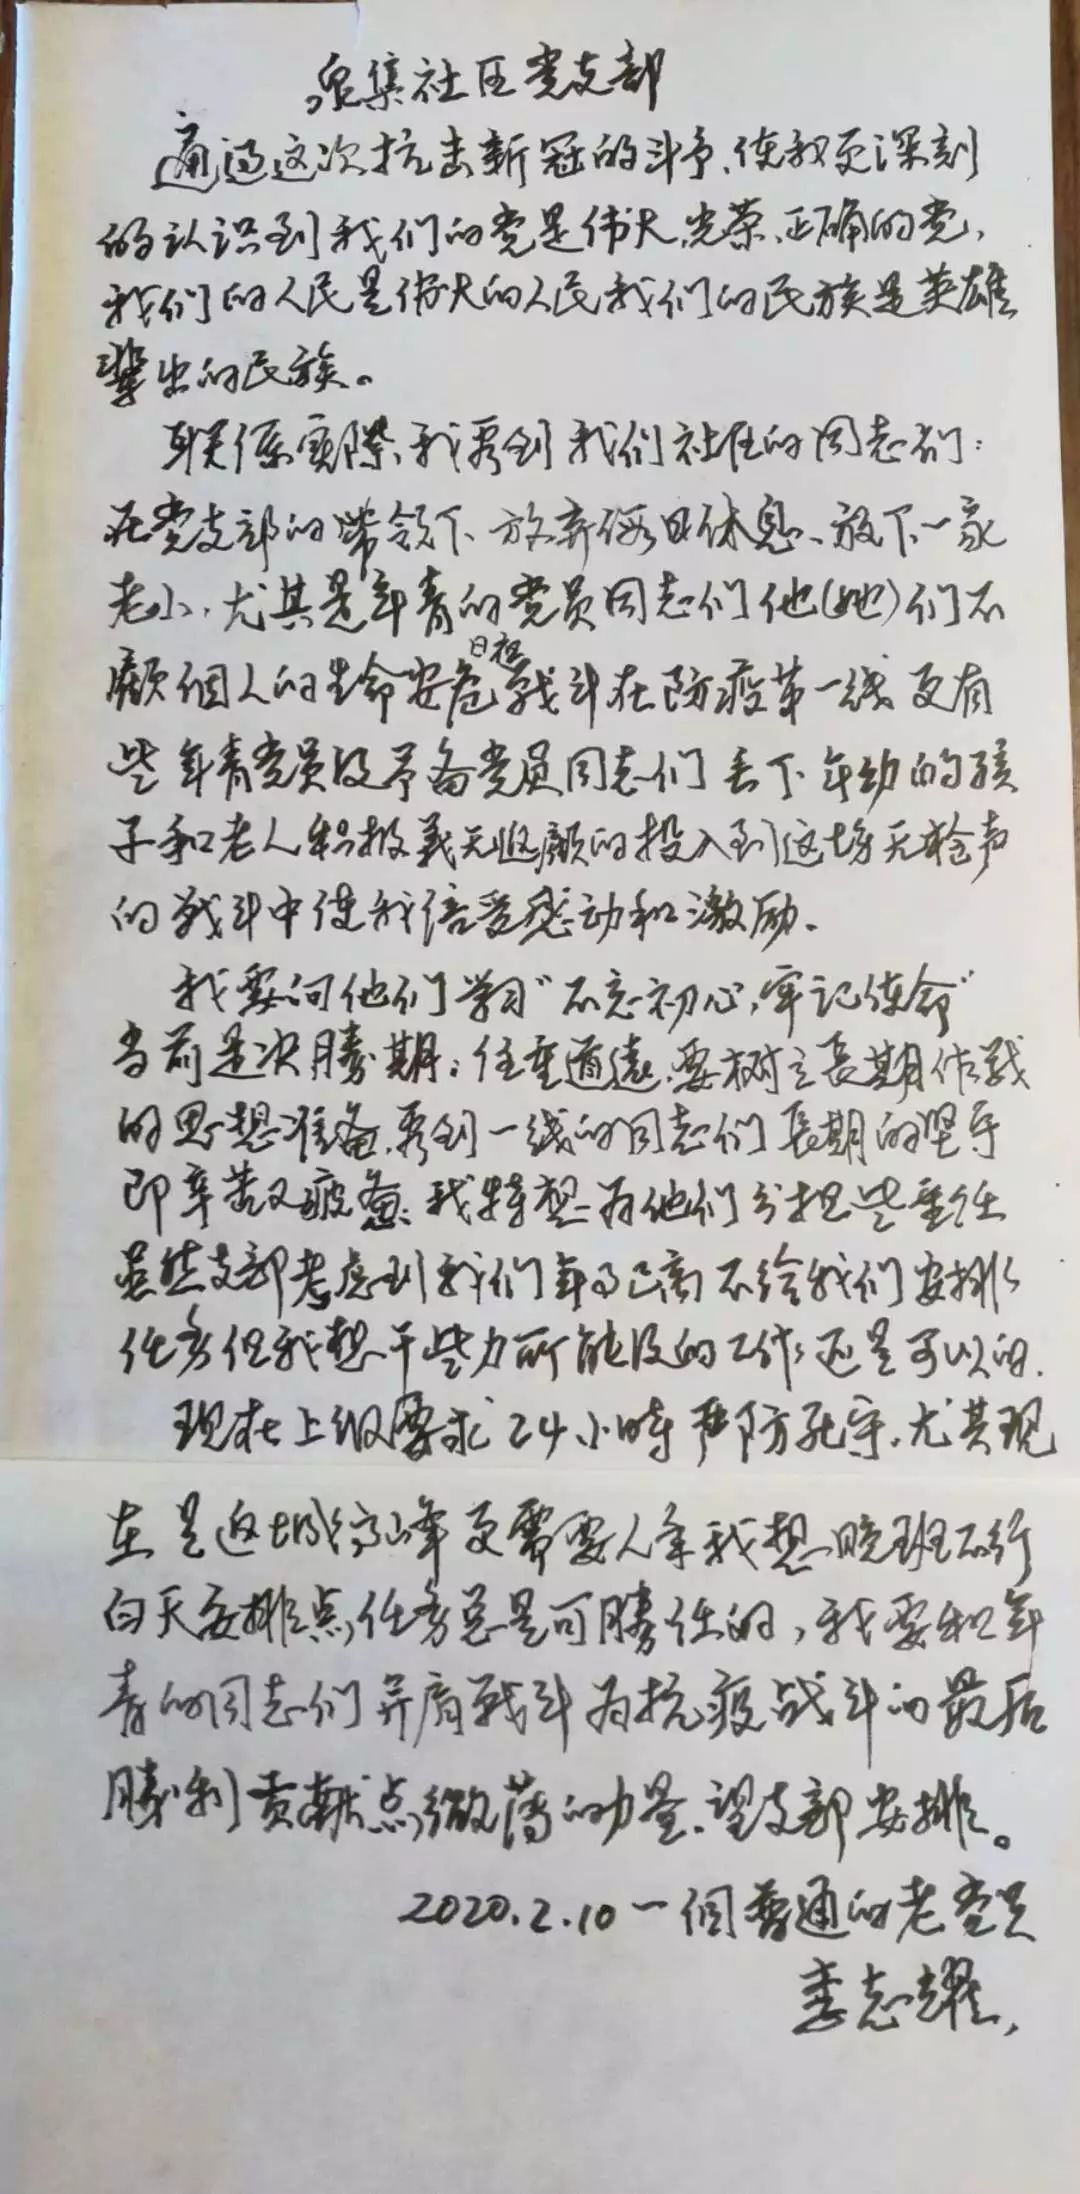 泉集社区党支部
通过这次抗击新冠的斗争、使我更深刻
的认识到我们的党是伟大、光荣、正确的党，
我们的人民是伟大的人民我们的民族是英雄
辈出的民族。
联係实際、我看到我们社区的同志们：
在党支部的带领下、放弃假日休息、放下一家
老小，尤其是年青的党员同志们他(她)们不
顧個人的生命安危日夜戰斗在防疫第一线更有
些年青党员及予备党员同志们丢下年幼的孩
子和老人积极義无返顧的投入到这場无枪声
的戰斗中使我倍受感动和激励.
我要向他们学习“不忘初心,牢记使命”
当前是决勝期；任重道遠、要樹立長期作戰
的思想准备、看到一线的同志们長期的坚守
即辛苦又疲惫；我特想为他们分担些重任
虽然支部考虑到我们年事已高不给我们安排
任务但我想干些力所能及的工作还是可以的.
现在上级要求24小時严防死守、尤其现
在是返城高峰更需要人手我想晚班不行
白天安排点任务总是可勝任的，我要和年
青的同志们并肩戰斗为抗疫战斗的最后
勝利贡献点微薄的力量、望支部安排。
2020.2.10一個普通的老党员
李志耀，